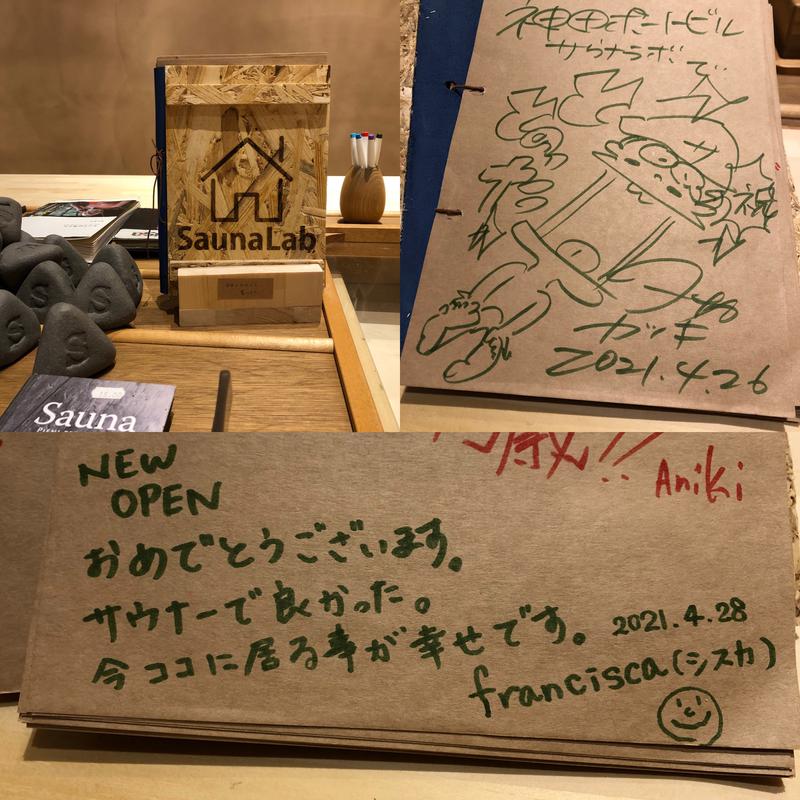 SaunaLab
S
S
S
Sauna
神田ポートビル
サウナラボで
祝
カツキ
2021.4.26
Aniki
NEW
OPEN
おめでとうございます。
サウナーで良かった。
今ココに居る事が幸せです。
2021.4.28
francisca(シスカ)